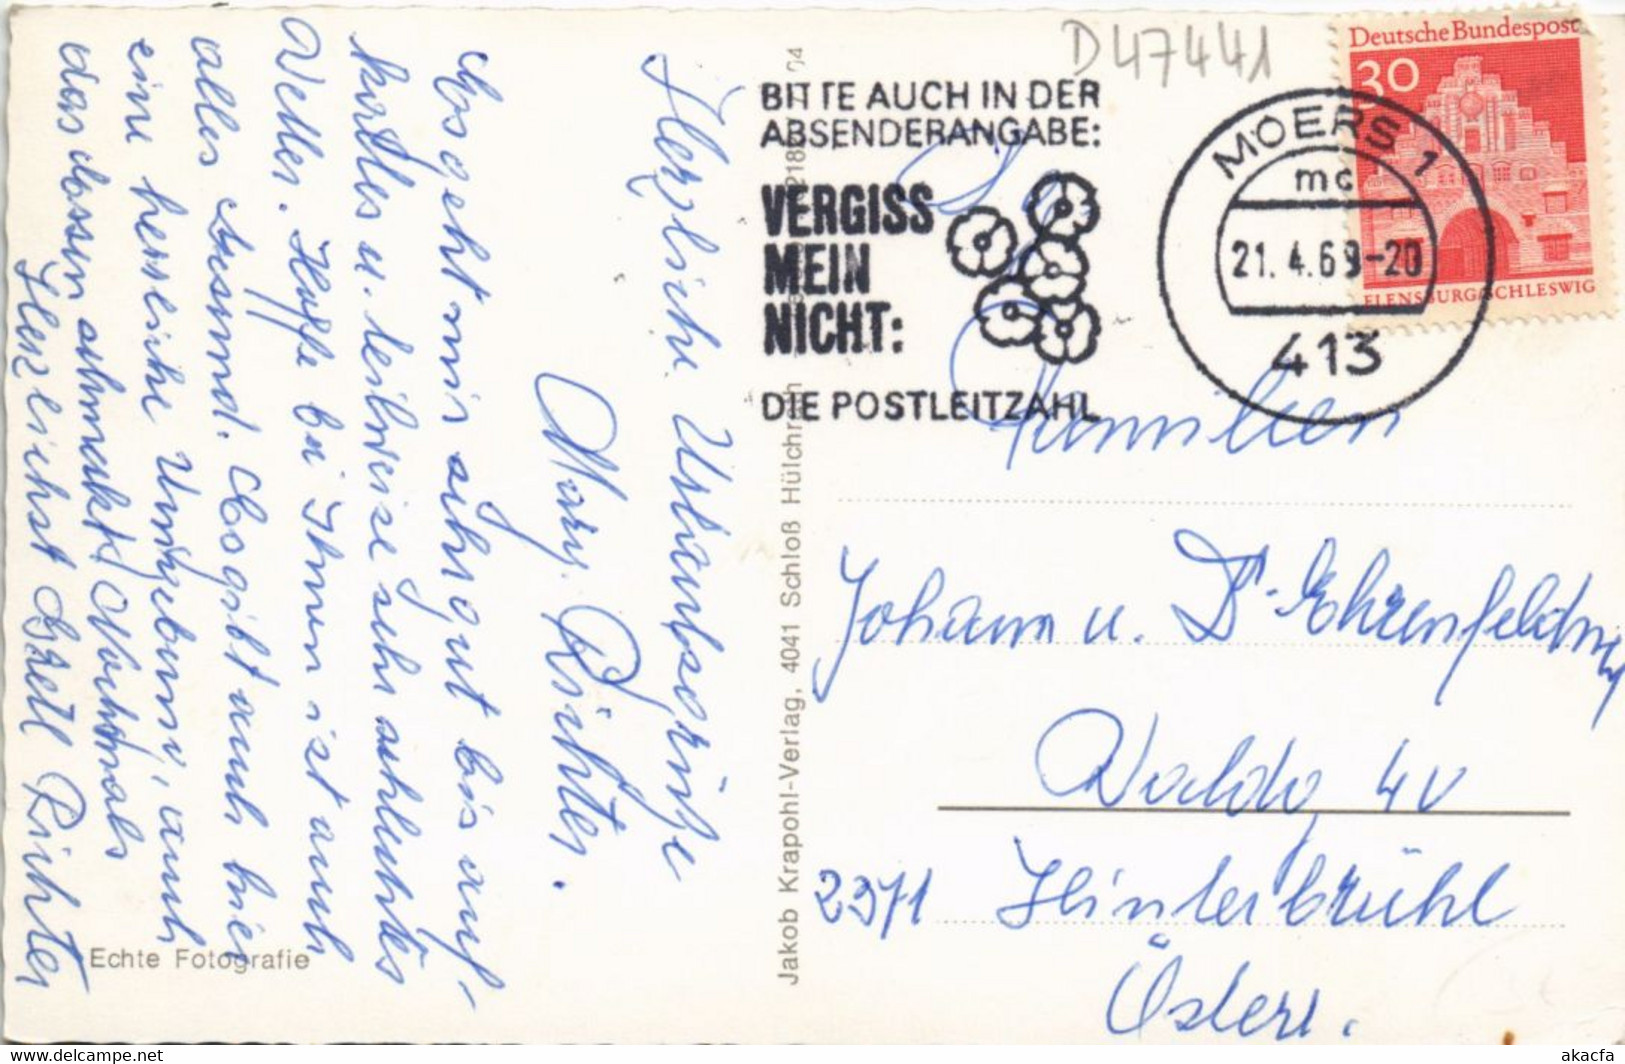 D47441
BITTE AUCH IN DER
ABSENDERANGABE:
VERGISS
MEIN
NICHT:
DIE POSTLEITZAHL
MOERS 1
mc
21.4.69-20
413
Deutsche Bundespost
30
FLENSBURG/SCHLESWIG
Familien
Johann u. Dr. Ehrenfeldner
Waldg 4v
2371 Hinterbrühl
Österr.
Jakob Krapohl-Verlag, 4041 Schloß Hülchrath
Herzliche Urlaubsgrüße
Mary Richter.
Es geht mir sehr gut bis auf
kaltes u. teilweise sehr schlechtes
Wetter. Hoffe bei Ihnen ist auch
alles gesund. Es gibt auch hier
eine herrliche Umgebung, auch
das Essen schmeckt. Nochmals
Herzlichst Gretl Richter
Echte Fotografie
akacfa